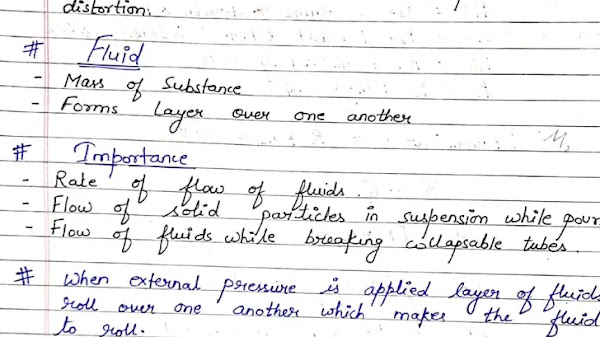 distortion.
# Fluid
- Mass of Substance
- Forms Layer over one another
# Importance
- Rate of flow of fluids.
- Flow of solid particles in suspension while pour
- Flow of fluids while breaking collapsable tubes.
# when external pressure is applied layer of fluids
roll over one another which makes the fluid
to roll.